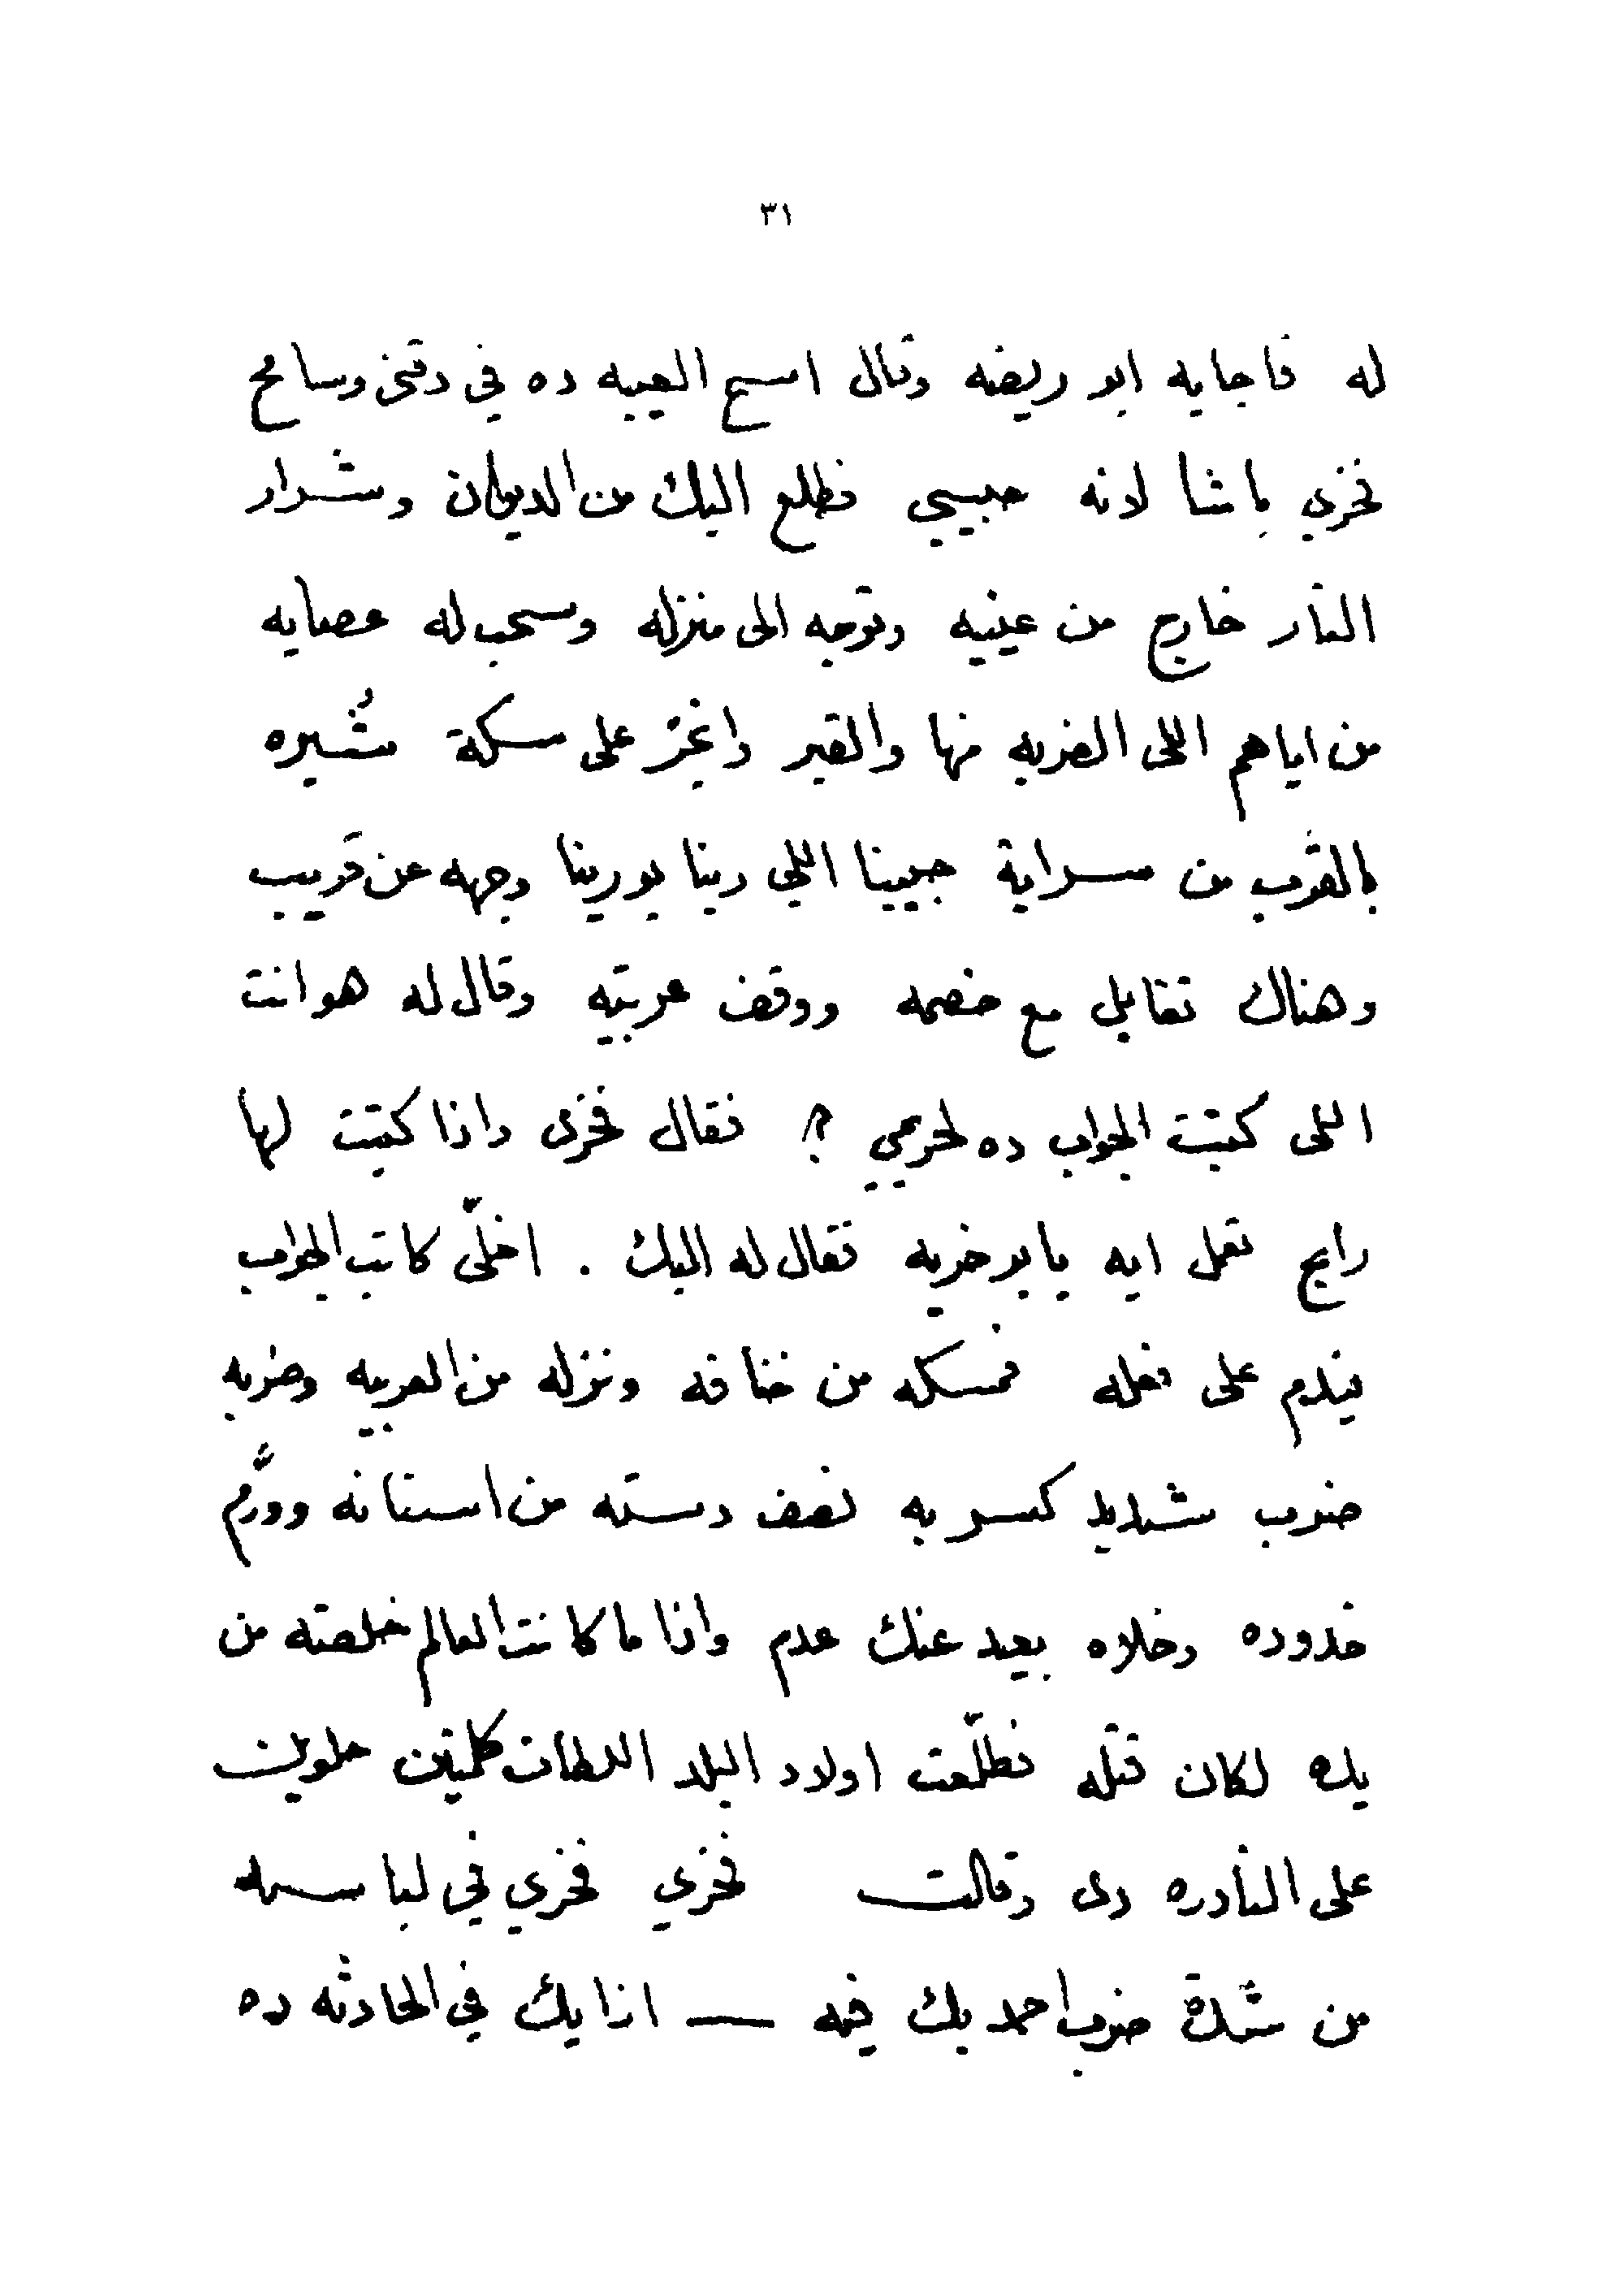 ٣١
له فاجابه ابو ريضه وقال امسح العيبه ده في دقني وسامح
فخري باشا لانه حبيبي فطلع البيك من الديوان وشرار
النار خارج من عينيه وتوجه الى منزله وسحب له عصايه
من اياهم اللى الضربه منها والقبر وانجرّ على سكة شُبره
بالقرب من سراية حبيبنا اللي ربنا يورينا وجهه عن قريب
وهناك تقابل مع خصمه ووقف عربيته وقال له هو انت
اللى كتبت الجواب ده لحريمي ؟ فقال فخرى واذا كتبت لها
رايح تعمل ايه يا بو خربه فقال له البيك . اخلّى كاتب الجواب
يندم على فعله فمسكه من خناقه ونزله من العربيه وضربه
ضرب شديد كسر به نصف دسته من اسنانه وورَّم
خدوده وخلاه بعيد عنك عدم واذا ما كانت العالم خلصته من
يده لكان قتله فطلّعت اولاد البلد اللطاف كلمتين حلوين
على النادره دى وقالت فخري فخري في لباسه
من شدة ضرب احمد بك فيه — ازا يك في الحادثه ده